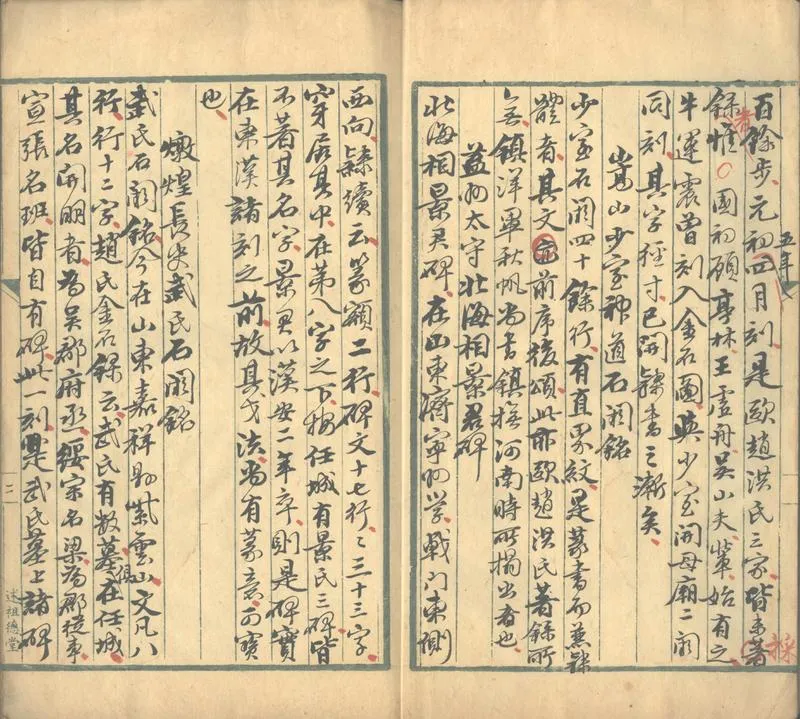 五年
百餘步元初四月刻是歐趙洪氏三家皆未著
錄惟國初顧亭林王虛舟吳山夫輩始有之
牛運震曾刻入金石圖與少室開母廟二闕
同刻其字徑寸已開隸書之漸矣
嵩山少室神道石闕銘
少室石闕四十餘行有直界紋是篆書而兼隸
體者其文前序後頌此亦歐趙洪氏著錄所
無鎮洋畢秋帆尚書鎮撫河南時所搨出者也
益州太守北海相景君碑
北海相景君碑在山東濟寧州學戟門東側
西向隸續云篆額二行碑文十七行〻三十三字
穿居其中在第八字之下按任城有景氏三碑皆
不著其名字景君以漢安二年卒則是碑實
在東漢諸刻之前故其戈法尚有篆意可寶
也
燉煌長史武氏石闕銘
武氏石闕銘今在山東嘉祥縣紫雲山文凡八
行行十二字趙氏金石錄云武氏有數墓俱在任城
其名開明者為吳郡府丞綏宗名梁為郡從事
宣張名班皆自有碑此一刻是武氏墓上諸碑
三
述祖德堂